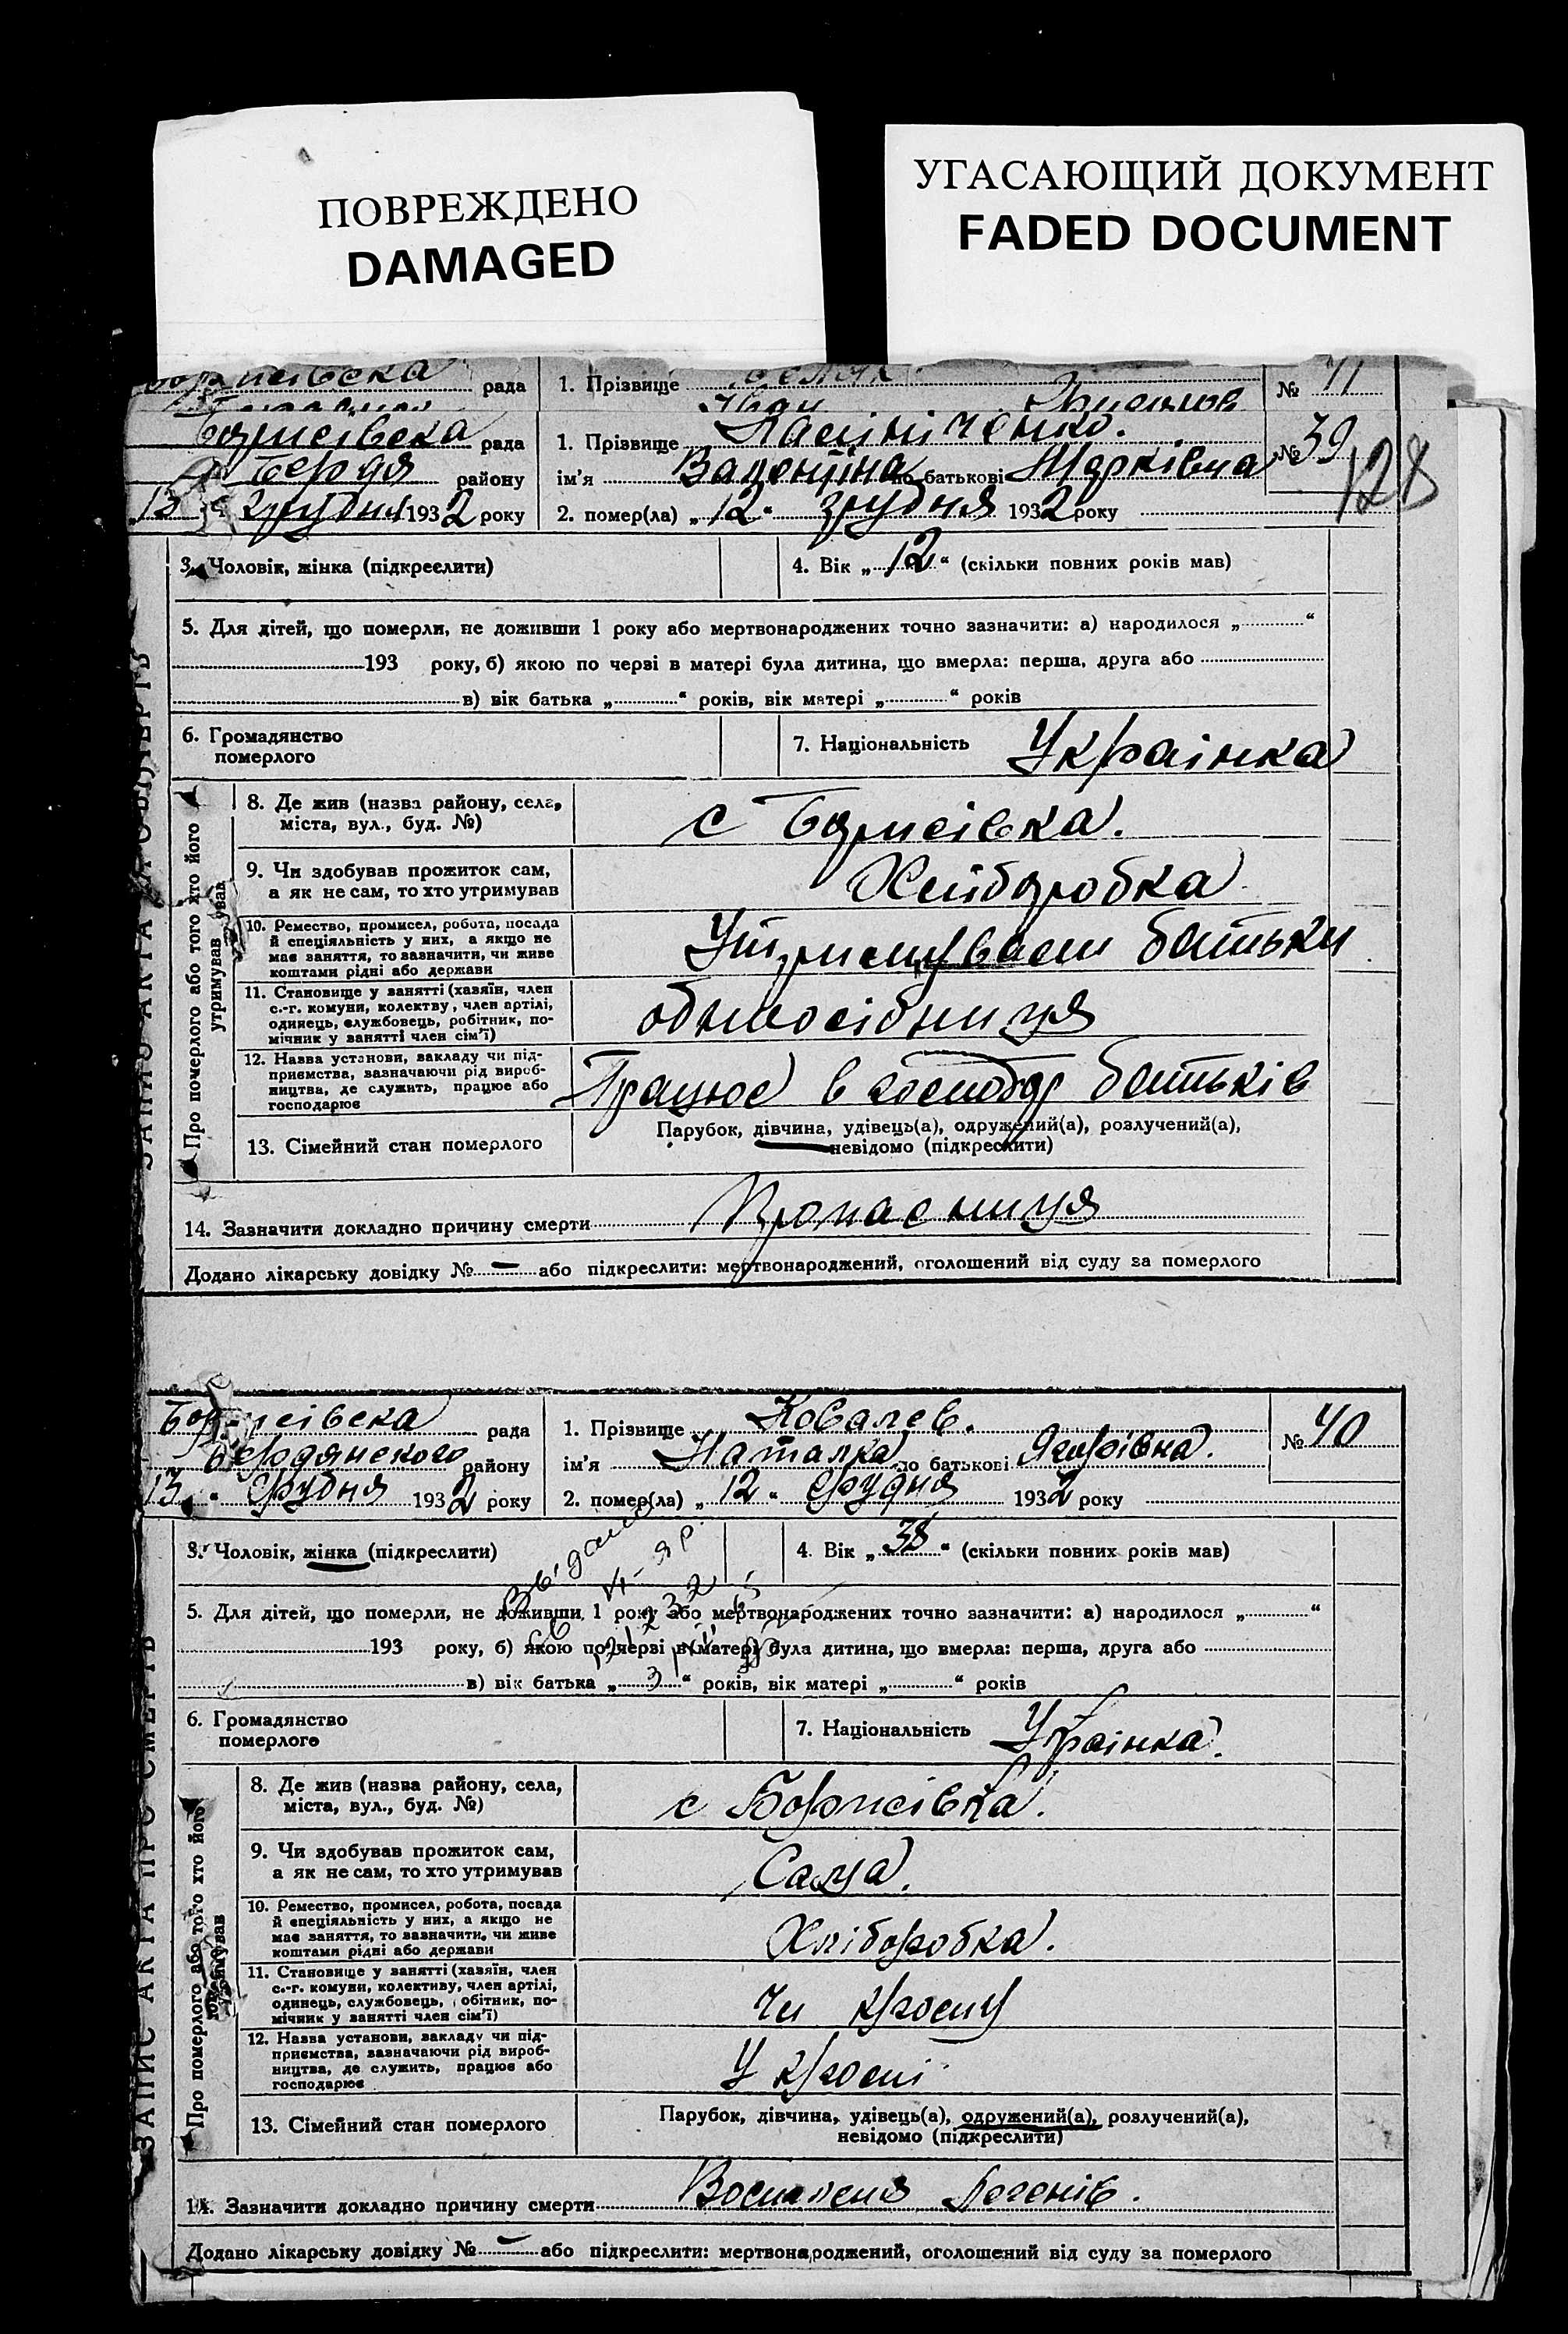 ПОВРЕЖДЕНО
DAMAGED
УГАСАЮЩИЙ ДОКУМЕНТ
FADED DOCUMENT
рада
1. Прізвище
№ 41
Іван
Борисівска рада
1. Прізвище
№ 39
128
Бердя району
ім'я Валентіна по батькові Марківна
13 Грудня 1932 року
2. помер(ла) „12“ грудня 1932 року
3. Чоловік, жінка (підкреслити)
4. Вік „12“ (скільки повних років мав)
5. Для дітей, що померли, не доживши 1 року або мертвонароджених точно зазначити: а) народилося „ “
193 року, б) якою по черзі в матері була дитина, що вмерла: перша, друга або
в) вік батька „ “ років, вік матері „ “ років
6. Громадянство
померлого
7. Національність Українка
ЗАПИС АКТА ПРО СМЕРТЬ
Про померлого або того хто його
утримував
8. Де жив (назва району, села,
міста, вул., буд. №)
с Борисівка.
9. Чи здобував прожиток сам,
а як не сам, то хто утримував
Хліборобка
10. Ремество, промисел, робота, посада
й спеціяльність у них, а якщо не
має заняття, то зазначити, чи живе
коштами рідні або держави
батьки
11. Становище у занятті (хазяїн, член
с.-г. комуни, колективу, член артілі,
одинець, службовець, робітник, по-
мічник у занятті член сім'ї)
одноосібниця
12. Назва установи, закладу чи під-
приємства, зазначаючи рід вироб-
ництва, де служить, працює або
господарює
Працює в господар батьків
13. Сімейний стан померлого
Парубок, дівчина, удівець(а), одружений(а), розлучений(а),
невідомо (підкреслити)
14. Зазначити докладно причину смерти Пропасниця
Додано лікарську довідку № – або підкреслити: мертвонароджений, оголошений від суду за померлого
Борисівска рада
1. Прізвище Ковалев.
№ 40
Бердянского району
ім'я Наталка по батькові
13 Грудня 1932 року
2. помер(ла) „12“ Грудня 1932 року
3. Чоловік, жінка (підкреслити)
4. Вік „38“ (скільки повних років мав)
Выдано
5. Для дітей, що померли, не доживши 1 року або мертвонароджених точно зазначити: а) народилося „ “
193 року, б) якою по черзі в матері була дитина, що вмерла: перша, друга або
в) вік батька „ “ років, вік матері „ “ років
6. Громадянство
померлого
7. Національність Українка.
ЗАПИС АКТА ПРО СМЕРТЬ
Про померлого або того хто його
утримував
8. Де жив (назва району, села,
міста, вул., буд. №)
с Борисівка.
9. Чи здобував прожиток сам,
а як не сам, то хто утримував
Сама.
10. Ремество, промисел, робота, посада
й спеціяльність у них, а якщо не
має заняття, то зазначити, чи живе
коштами рідні або держави
Хліборобка.
11. Становище у занятті (хазяїн, член
с.-г. комуни, колективу, член артілі,
одинець, службовець, робітник, по-
мічник у занятті член сім'ї)
Чл
12. Назва установи, закладу чи під-
приємства, зазначаючи рід вироб-
ництва, де служить, працює або
господарює
У
13. Сімейний стан померлого
Парубок, дівчина, удівець(а), одружений(а), розлучений(а),
невідомо (підкреслити)
14. Зазначити докладно причину смерти Воспаленя Легенів.
Додано лікарську довідку № – або підкреслити: мертвонароджений, оголошений від суду за померлого